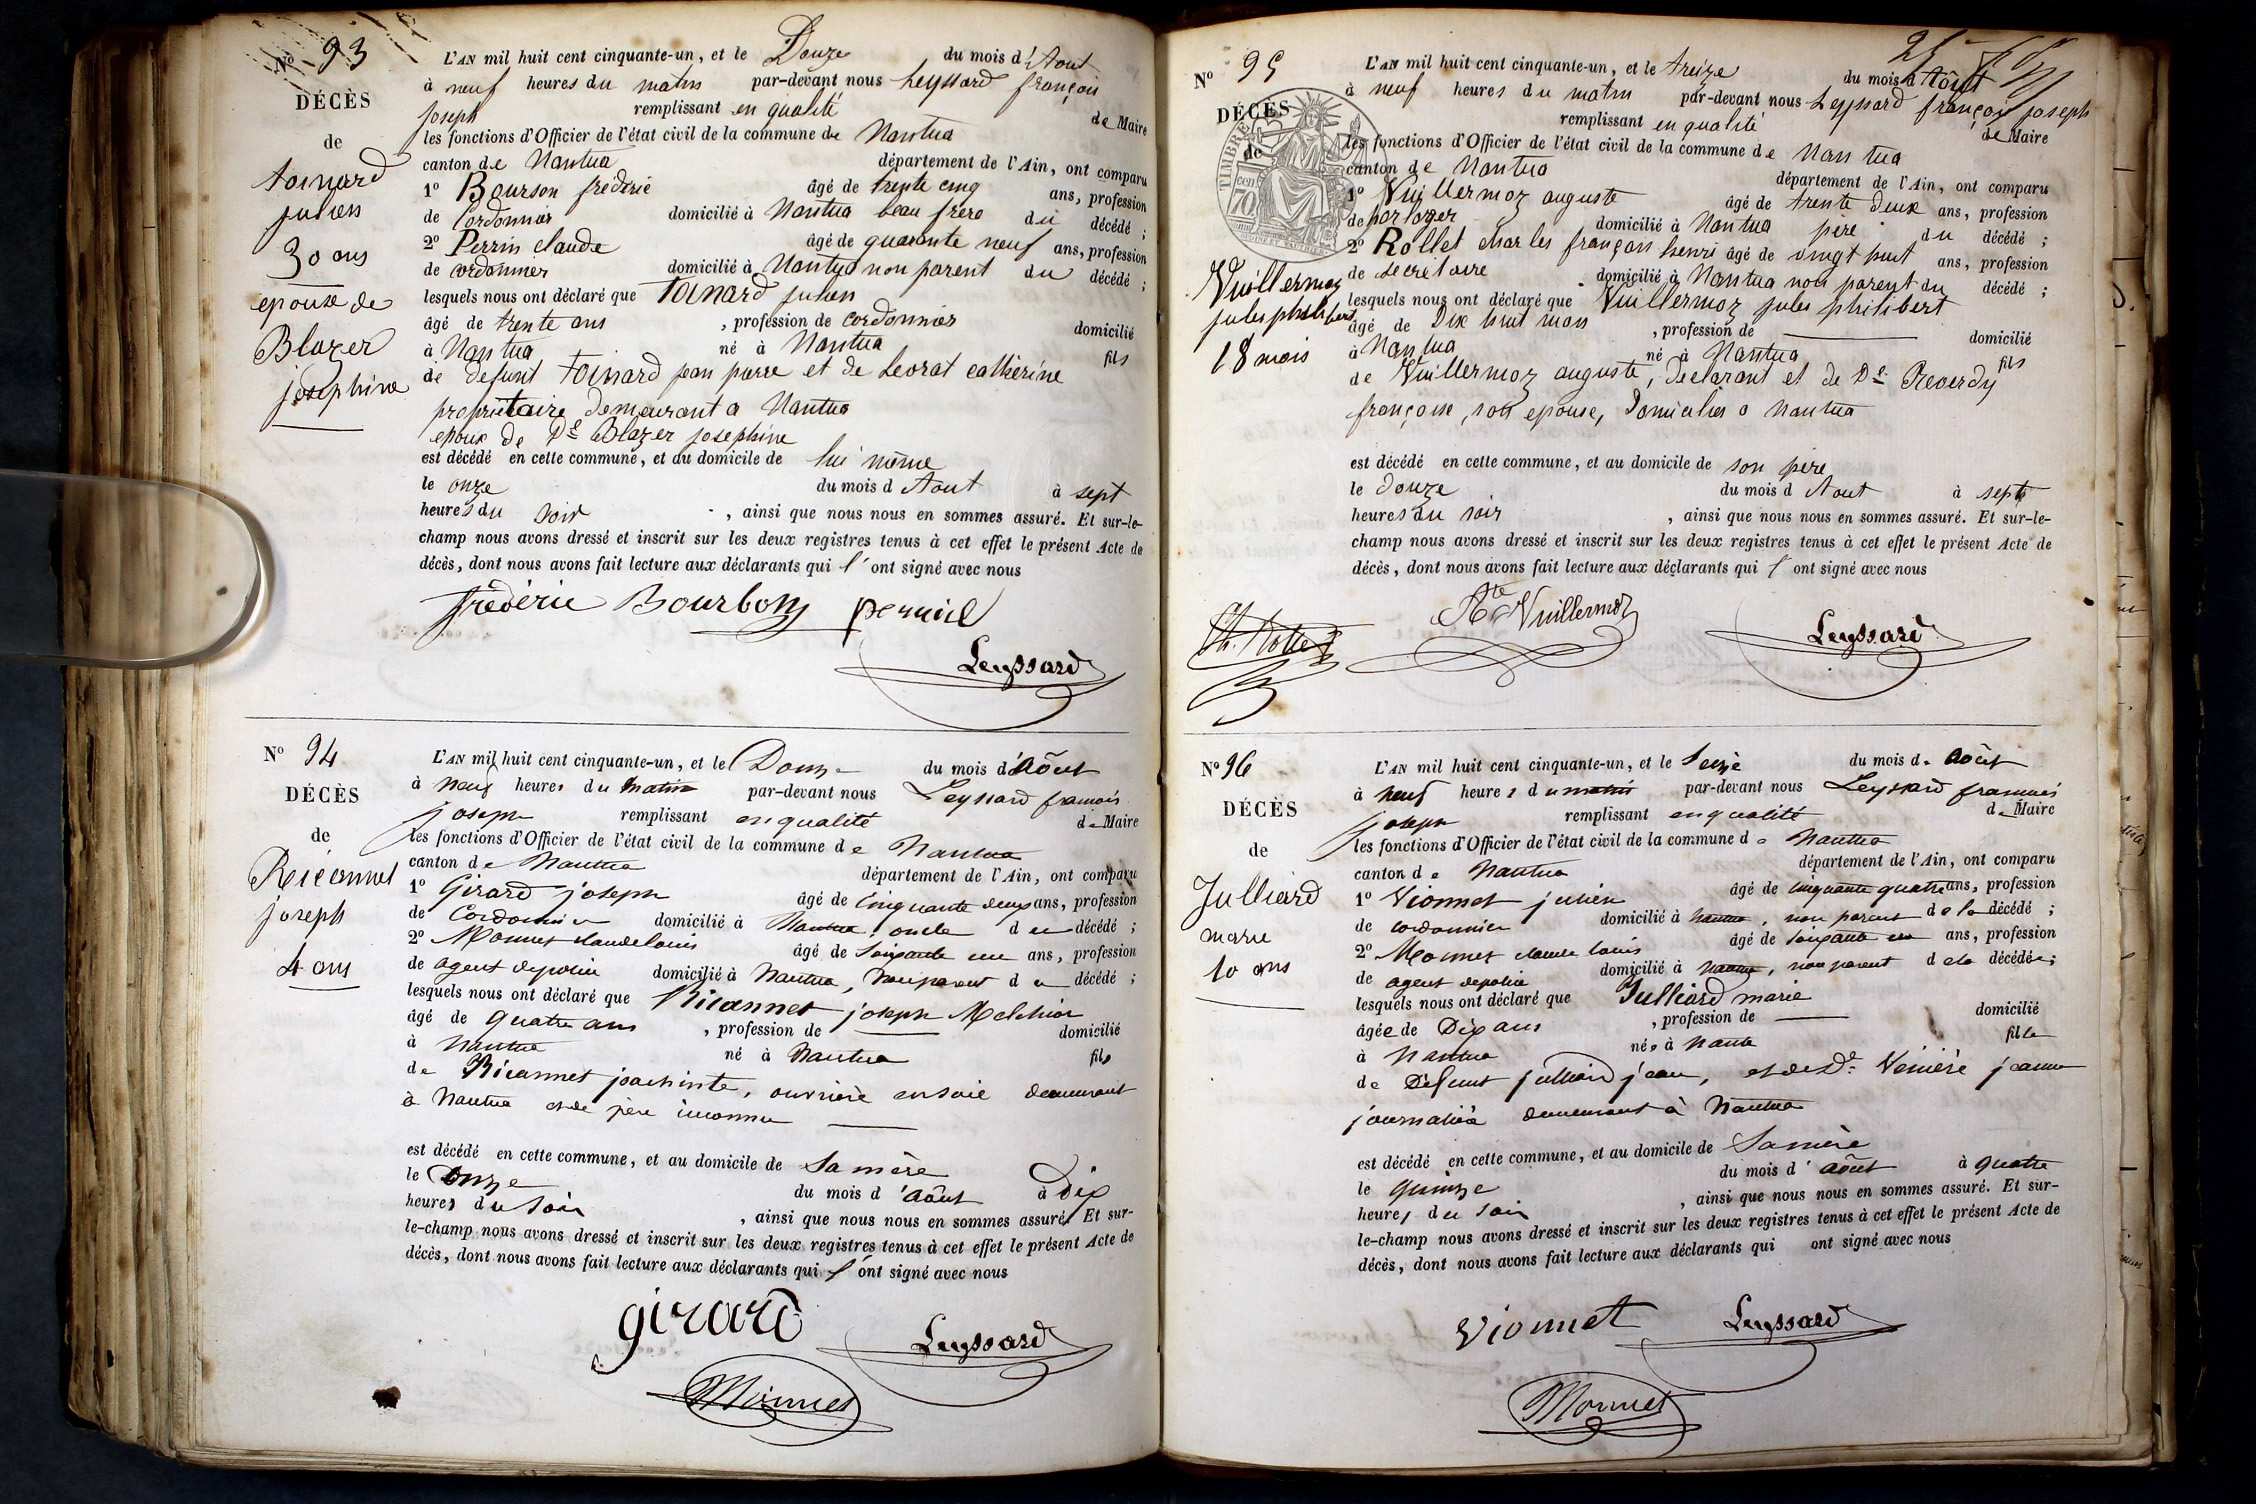 Nº 93
DÉCÈS
de
toinard
julien
30 ans
epoux de
Blazer
josephine
L'AN mil huit cent cinquante-un, et le Douze du mois d'Aout
à neuf heures du matin par-devant nous Leyssard françois
joseph remplissant en qualité de Maire
les fonctions d'Officier de l'état civil de la commune de Nantua
canton de Nantua département de l'Ain, ont comparu
1º Bourson frédéric âgé de trente cinq ans, profession
de Cordonnier domicilié à Nantua beau frère du décédé ;
2º Perrin claude âgé de quarante neuf ans, profession
de cordonnier domicilié à Nantua non parent du décédé ;
lesquels nous ont déclaré que Toinard julien
âgé de trente ans , profession de cordonnier domicilié
à Nantua né à Nantua fils
de defunt toinard jean pierre et de Leorat catherine
propriétaire demeurant a Nantua
epoux de De Blazer josephine
est décédé en cette commune, et au domicile de lui même
le onze du mois d Aout à sept
heures du soir , ainsi que nous nous en sommes assuré. Et sur-le-
champ nous avons dressé et inscrit sur les deux registres tenus à cet effet le présent Acte de
décès, dont nous avons fait lecture aux déclarants qui l'ont signé avec nous
frédéric Bourbon
Leyssard
Nº 94
DÉCÈS
de
Ricannet
joseph
4 ans
L'AN mil huit cent cinquante-un, et le Douze du mois d'Août
à neuf heures du matin par-devant nous Leyssard francois
joseph remplissant en qualité de Maire
les fonctions d'Officier de l'état civil de la commune de Nantua
canton de Nantua département de l'Ain, ont comparu
1º Girard joseph âgé de cinquante deux ans, profession
de Cordonnier domicilié à Nantua, oncle du décédé ;
2º Monnet claude louis âgé de soixante un ans, profession
de agent de police domicilié à Nantua, non parent du décédé ;
lesquels nous ont déclaré que Ricannet joseph Melchior
âgé de quatre ans , profession de domicilié
à Nantua né à Nantua fils
de Ricannet joachinte, ouvrière en soie demeurant
à Nantua et de père inconnu
est décédé en cette commune, et au domicile de sa mère
le onze du mois d'Août à Dix
heures du soir , ainsi que nous nous en sommes assuré. Et sur-
le-champ nous avons dressé et inscrit sur les deux registres tenus à cet effet le présent Acte de
décès, dont nous avons fait lecture aux déclarants qui l'ont signé avec nous
girard
Leyssard
Monnet
Nº 95
DÉCÈS
de
Vuillermoz
jules philibert
18 mois
TIMBRE
70 cen
L'AN mil huit cent cinquante-un, et le treize du mois d'Août
à neuf heures du matin par-devant nous Leyssard françois joseph
remplissant en qualité de Maire
les fonctions d'Officier de l'état civil de la commune de Nantua
canton de Nantua département de l'Ain, ont comparu
1º Vuillermoz auguste âgé de trente deux ans, profession
de horloger domicilié à Nantua père du décédé ;
2º Rollet charles françois henri âgé de vingt huit ans, profession
de secretaire domicilié à Nantua non parent du décédé ;
lesquels nous ont déclaré que Vuillermoz jules philibert
âgé de Dix huit mois , profession de domicilié
à Nantua né à Nantua fils
de Vuillermoz auguste, declarant et de De Reverdy
françoise, son epouse, Domiciliés a Nantua
est décédé en cette commune, et au domicile de son père
le douze du mois d Aout à sept
heures du soir , ainsi que nous nous en sommes assuré. Et sur-le-
champ nous avons dressé et inscrit sur les deux registres tenus à cet effet le présent Acte de
décès, dont nous avons fait lecture aux déclarants qui l'ont signé avec nous
Ch. Rollet
Ate Vuillermoz
Leyssard
Nº 96
DÉCÈS
de
Julliard
marie
10 ans
L'AN mil huit cent cinquante-un, et le Seize du mois d. Août
à neuf heures du matin par-devant nous Leyssard francois
joseph remplissant en qualité de Maire
les fonctions d'Officier de l'état civil de la commune de Nantua
canton de Nantua département de l'Ain, ont comparu
1º Vionnet julien âgé de cinquante quatre ans, profession
de cordonnier domicilié à Nantua, non parent de la décédé ;
2º Monnet claude louis âgé de soixante un ans, profession
de agent de police domicilié à Nantua, non parent de la décédée ;
lesquels nous ont déclaré que Julliard marie
âgée de Dix ans , profession de domicilié
à Nantua née à Nantua fille
de Défunt julliard jean, et de De Venière jeanne
journalière demeurant à Nantua
est décédé en cette commune, et au domicile de Sa mère
le quinze du mois d'Août à quatre
heures du soir , ainsi que nous nous en sommes assuré. Et sur-
le-champ nous avons dressé et inscrit sur les deux registres tenus à cet effet le présent Acte de
décès, dont nous avons fait lecture aux déclarants qui ont signé avec nous
Vionnet
Leyssard
Monnet